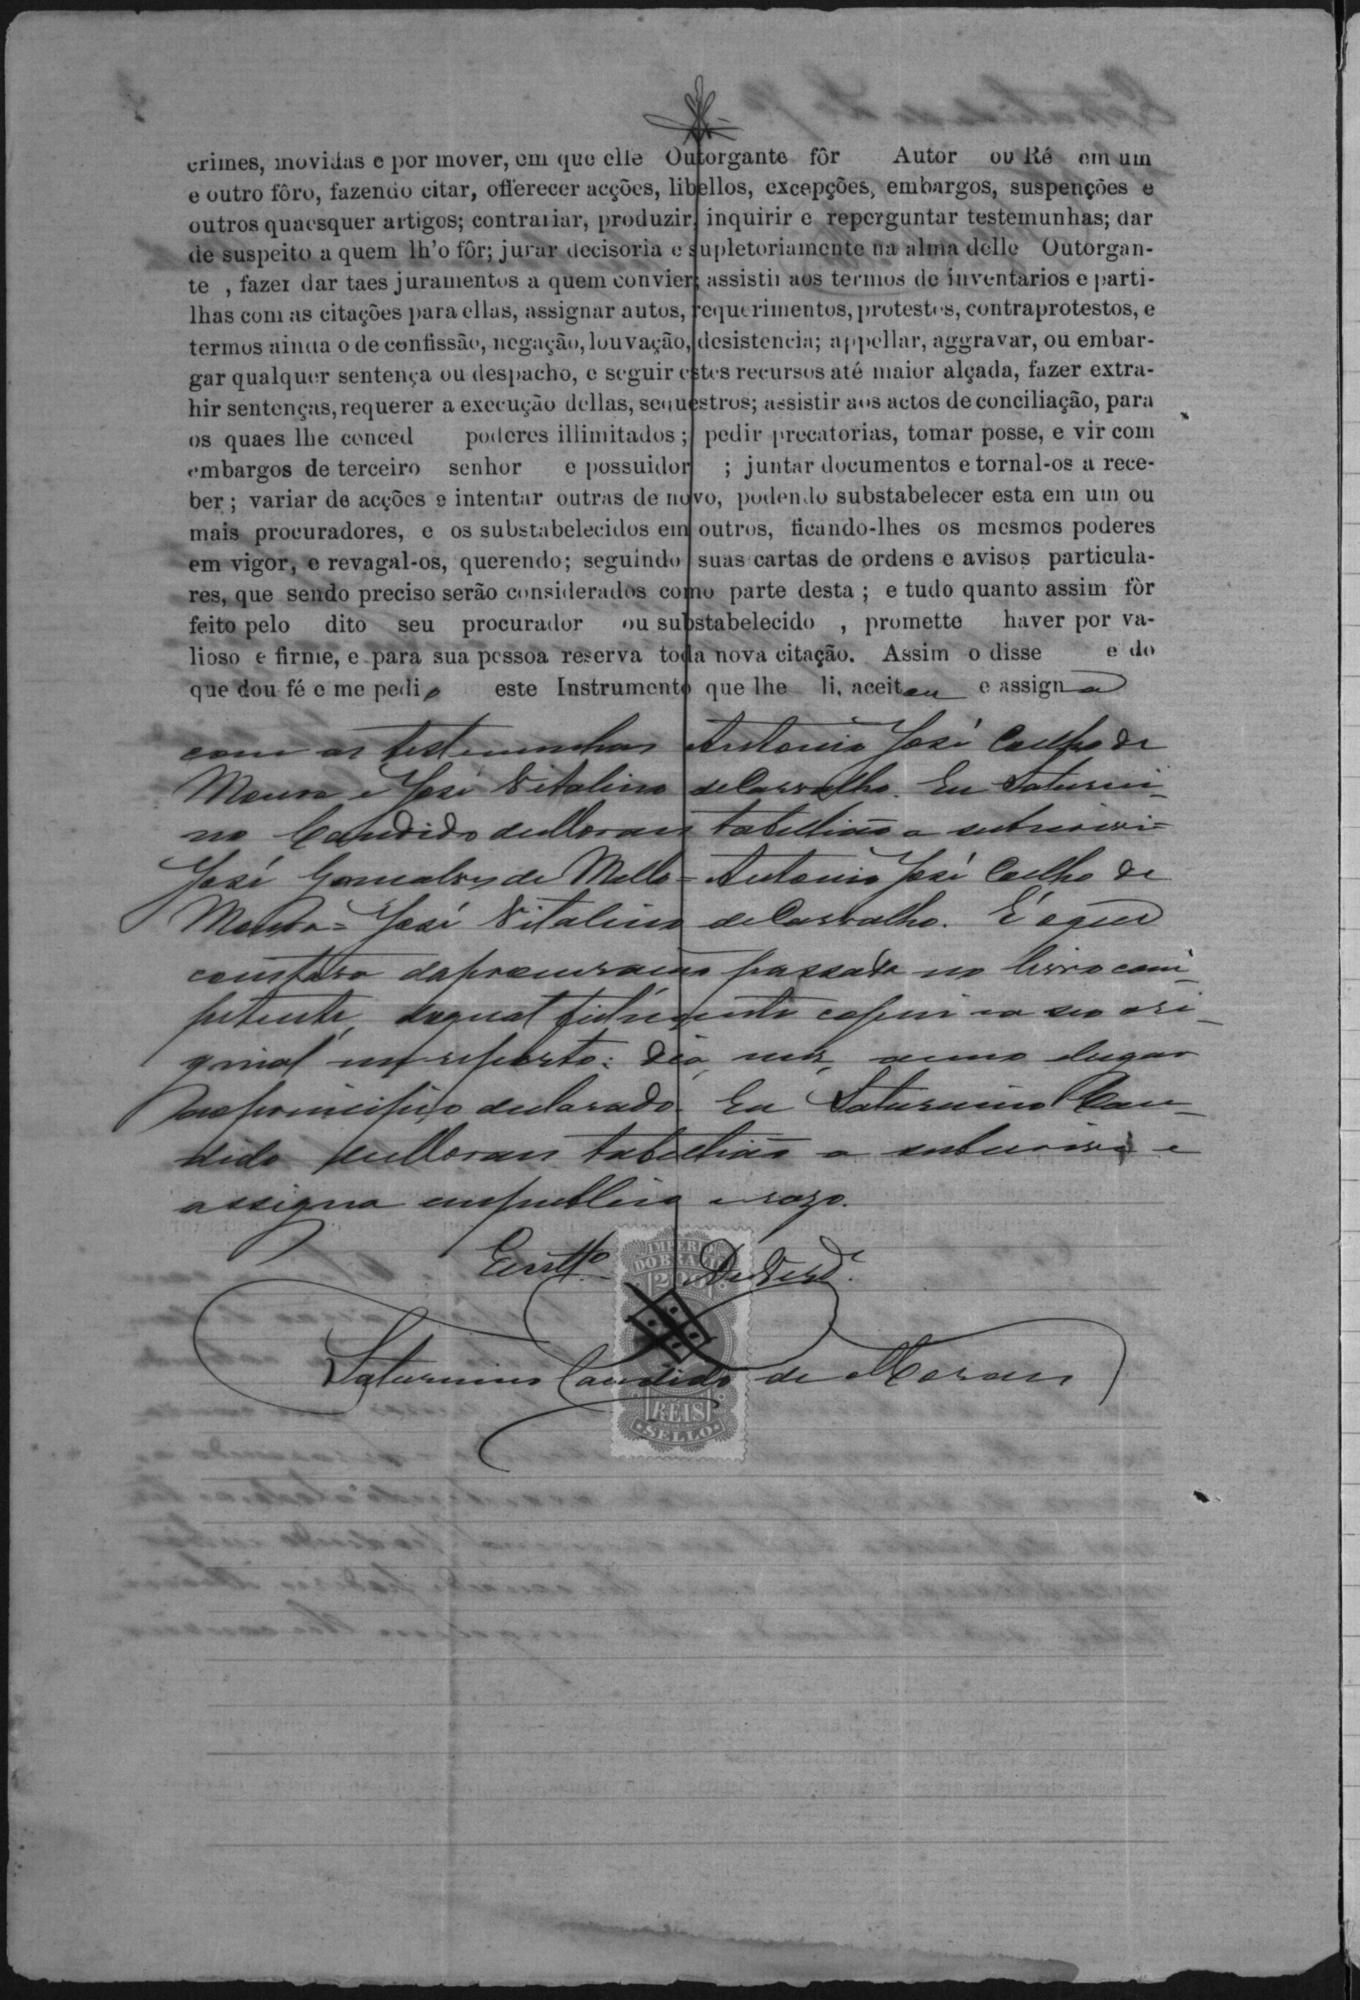 crimes, movidas e por mover, em que elle Outorgante fôr Autor ou Ré em um
e outro fôro, fazendo citar, offerecer acções, libellos, excepções, embargos, suspenções e
outros quaesquer artigos; contrariar, produzir, inquirir e reperguntar testemunhas; dar
de suspeito a quem lh'o fôr; jurar decisoria e supletoriamente na alma delle Outorgan-
te , fazer dar taes juramentos a quem convier; assistir aos termos de inventarios e parti-
lhas com as citações para ellas, assignar autos, requerimentos, protestos, contraprotestos, e
termos ainda o de confissão, negação, louvação, desistencia; appellar, aggravar, ou embar-
gar qualquer sentença ou despacho, e seguir estes recursos até maior alçada, fazer extra-
hir sentenças, requerer a execução dellas, sequestros; assistir aos actos de conciliação, para
os quaes lhe conced poderes illimitados; pedir precatorias, tomar posse, e vir com
embargos de terceiro senhor e possuidor ; juntar documentos e tornal-os a rece-
ber; variar de acções e intentar outras de novo, podendo substabelecer esta em um ou
mais procuradores, e os substabelecidos em outros, ficando-lhes os mesmos poderes
em vigor, e revagal-os, querendo; seguindo suas cartas de ordens e avisos particula-
res, que sendo preciso serão considerados como parte desta; e tudo quanto assim fôr
feito pelo dito seu procurador ou substabelecido , promette haver por va-
lioso e firme, e para sua pessoa reserva toda nova citação. Assim o disse e do
que dou fé e me pedio este Instrumento que lhe li, aceitou e assigna
com as testemunhas Antonio José Coelho de
Moura e José Vitalino de Carvalho. Eu Saturni-
no Candido de Moraes tabellião a subscrevi=
José Gonçalves de Mello= Antonio José Coelho de
Moura= José Vitalino de Carvalho. É o que
constava da procuração passada no livro com-
petente, da qual fielmente copiei e a seo ori-
ginal me reporto: dia, mez, anno e lugar
ao principio declarado. Eu Saturnino Can-
dido de Moraes tabellião a subscrevi e
assigno em publico e razo.
Em Tto de Verde.
IMPERIO
DO BRAZIL
200
Saturnino Candido de Moraes
REIS
SELLO